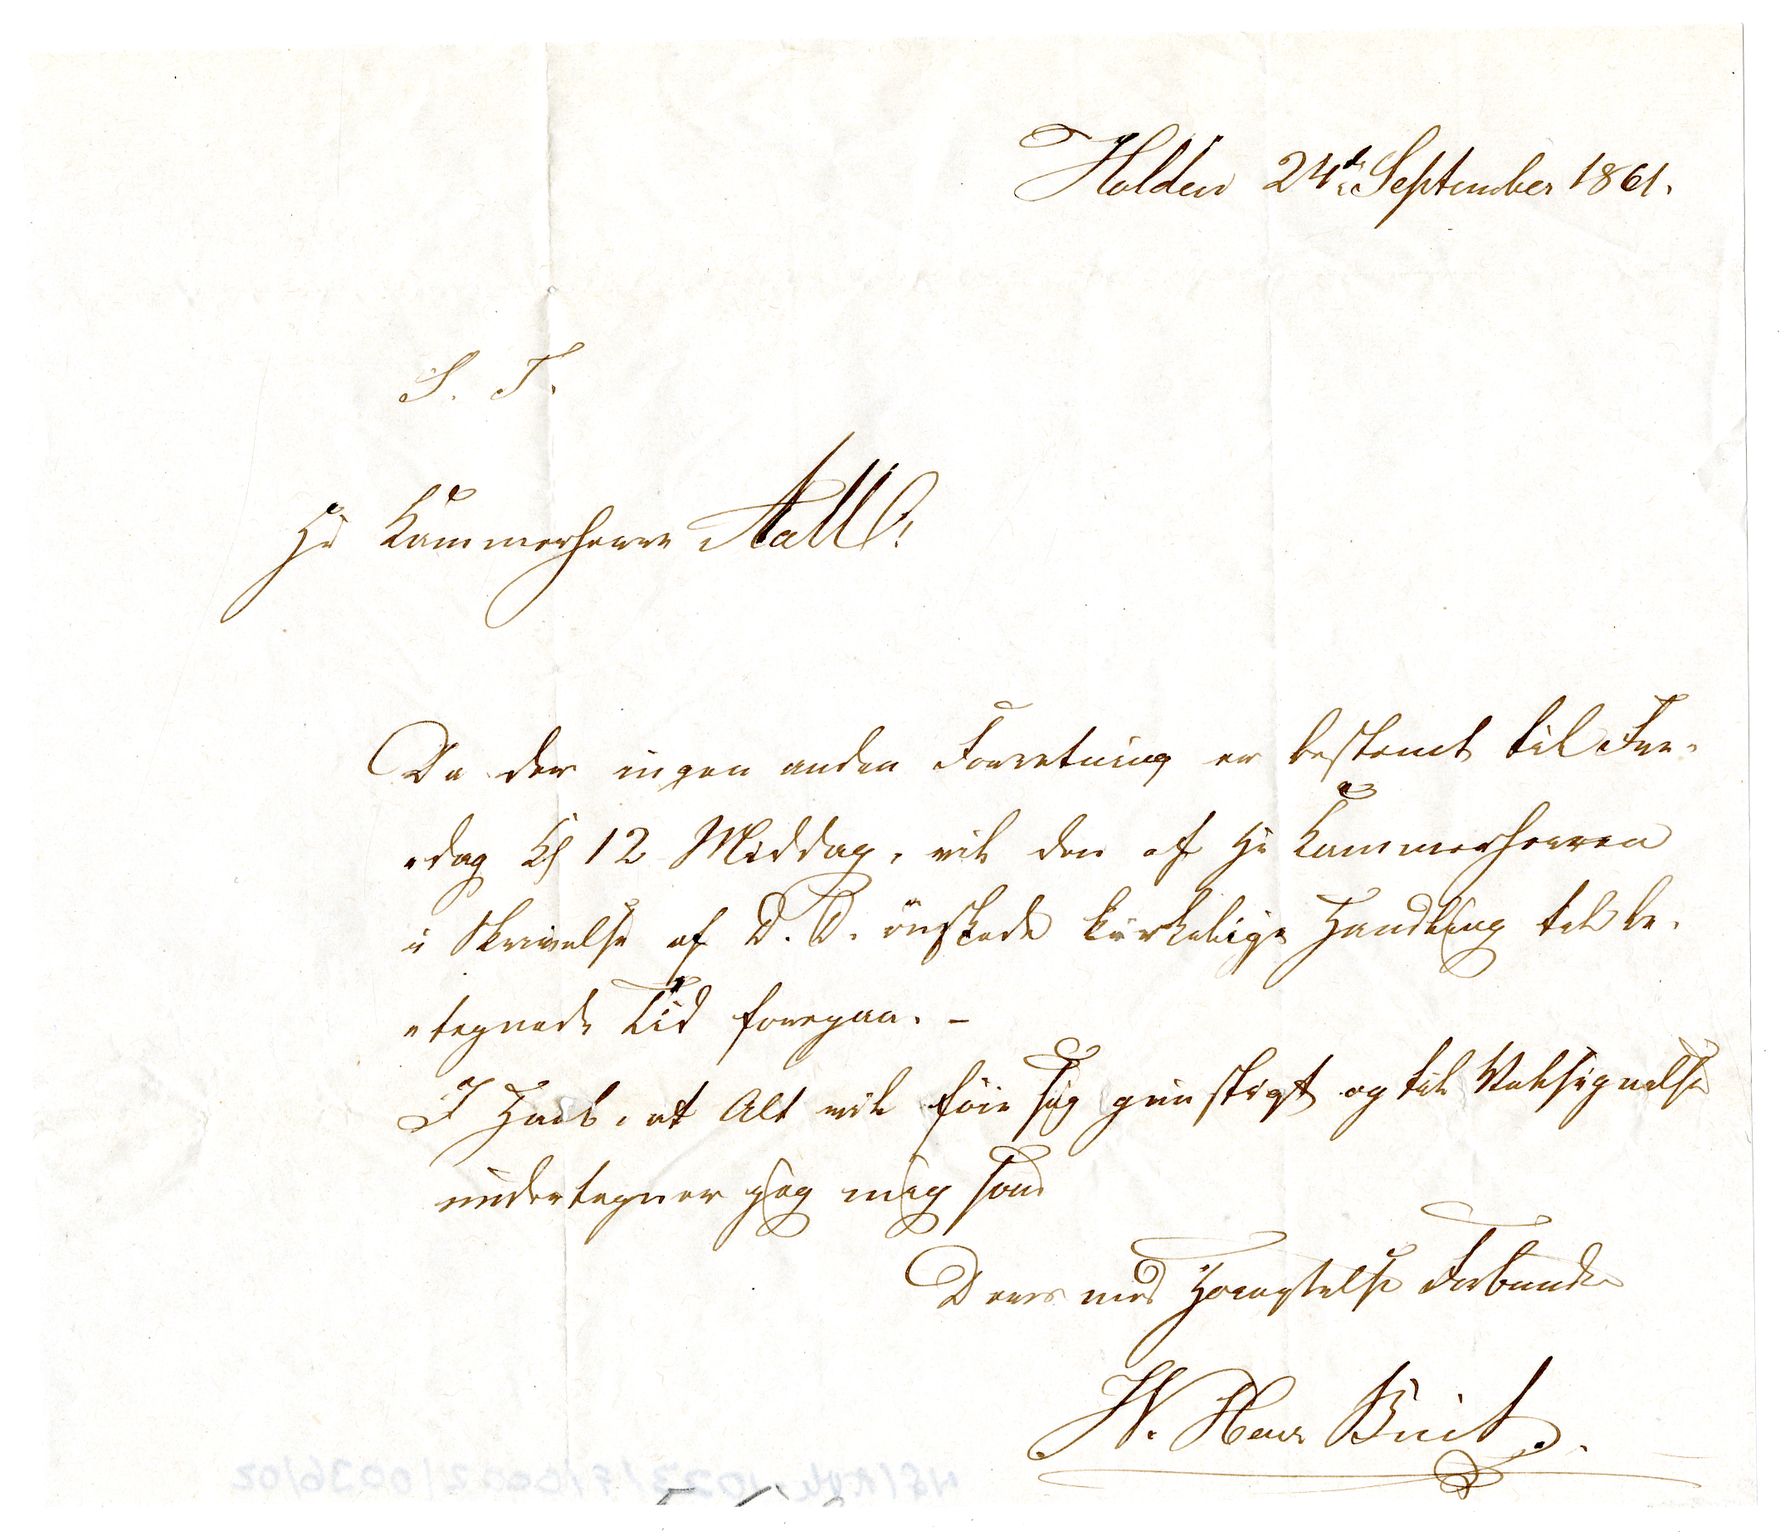 Holden 24de September 1861.
S. T.
Hr Kammerherre Aall!
Da der ingen anden Forretning er bestemt til Fre-
-dag Kl 12 Middag, vil den af Hr Kammerherren
i Skrivelse af D. D. önskede kirkelige Handling til be-
-tegnede Tid foregaa. -
I Haab, at Alt vil föie sig gunstigt og til Velsignelse
undertegner jeg mig som
Deres med Høiagtelse Forbundne
W.